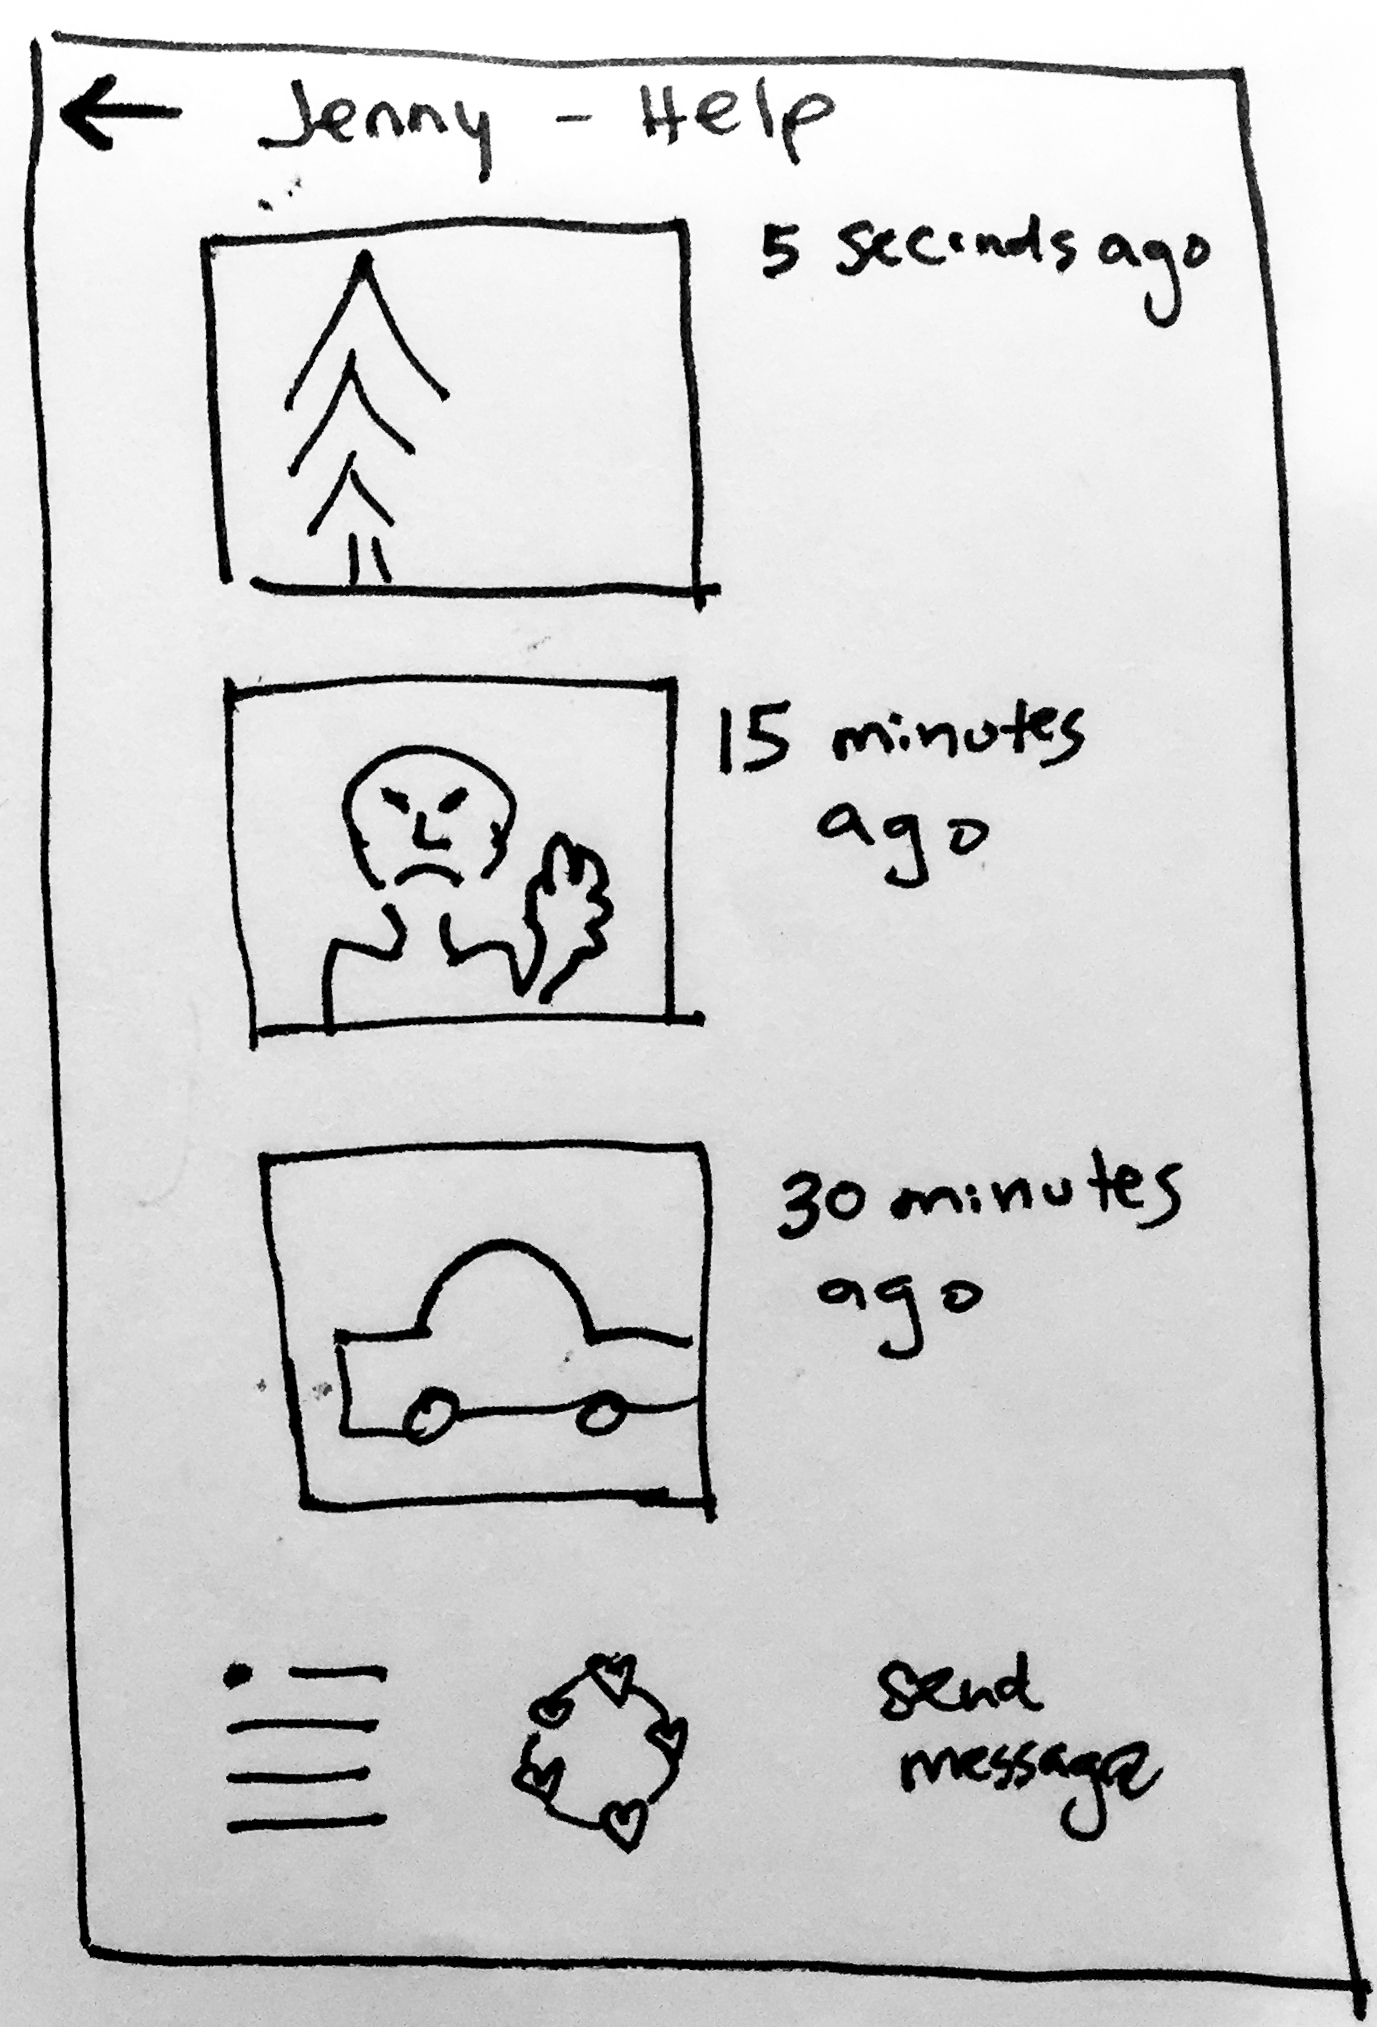 Jenny - Help
5 seconds ago
15 minutes
ago
30 minutes
ago
send
message